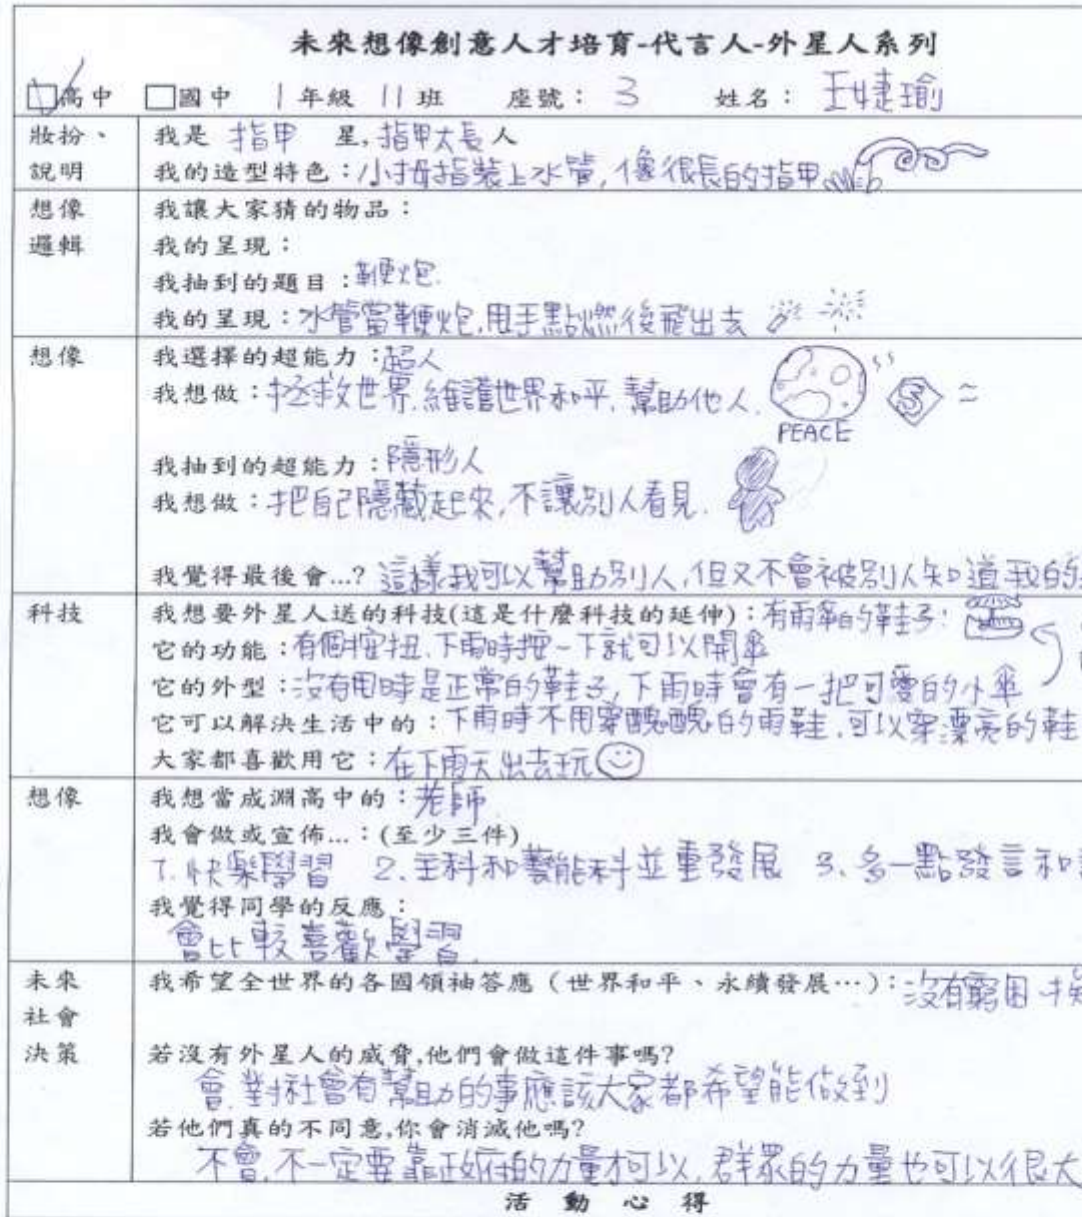 未來想像創意人才培育-代言人-外星人系列
□高中 □國中 1年級 11班 座號：3 姓名：王婕瑜
妝扮、說明
我是 指甲 星,指甲太長人
我的造型特色：小拇指裝上水管,像很長的指甲
想像邏輯
我讓大家猜的物品：
我的呈現：
我抽到的題目：鞭炮.
我的呈現：水管當鞭炮,用手點燃後飛出去
想像
我選擇的超能力：超人
我想做：拯救世界.維護世界和平.幫助他人.
PEACE
S
我抽到的超能力：隱形人
我想做：把自己隱藏起來,不讓別人看見.
我覺得最後會…? 這樣我可以幫助別人,但又不會被別人知道我的
科技
我想要外星人送的科技(這是什麼科技的延伸)：有雨傘的鞋子!
它的功能：有個按扭.下雨時按一下就可以開傘
它的外型：沒有用時是正常的鞋子,下雨時會有一把可愛的小傘
它可以解決生活中的：下雨時不用穿醜醜的雨鞋.可以穿漂亮的鞋
大家都喜歡用它：在下雨天出去玩
想像
我想當成淵高中的：老師
我會做或宣佈…：(至少三件)
1.快樂學習 2.主科和藝能科並重發展 3.多一點發言和
我覺得同學的反應：
會比較喜歡學習
未來社會決策
我希望全世界的各國領袖答應（世界和平、永續發展…）：沒有窮困
若沒有外星人的威脅,他們會做這件事嗎?
會.對社會有幫助的事應該大家都希望能做到
若他們真的不同意,你會消滅他嗎?
不會.不一定要靠政府的力量才可以.群眾的力量也可以很大
活動心得